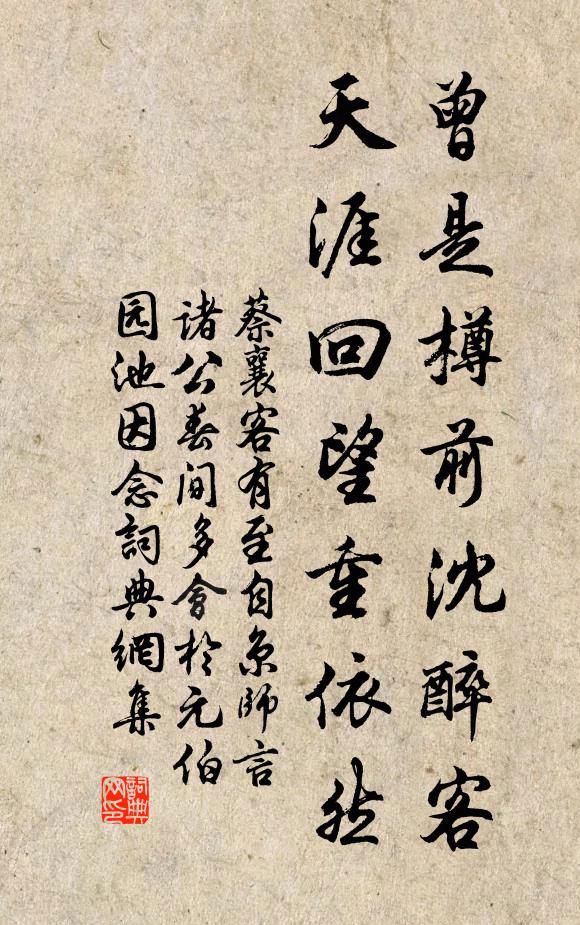 曾是樽前沈醉客
天涯回望重依然
蔡襄客有至自京師言
諸公春间多會於元伯
园池因念詞典網集
詞典
网印